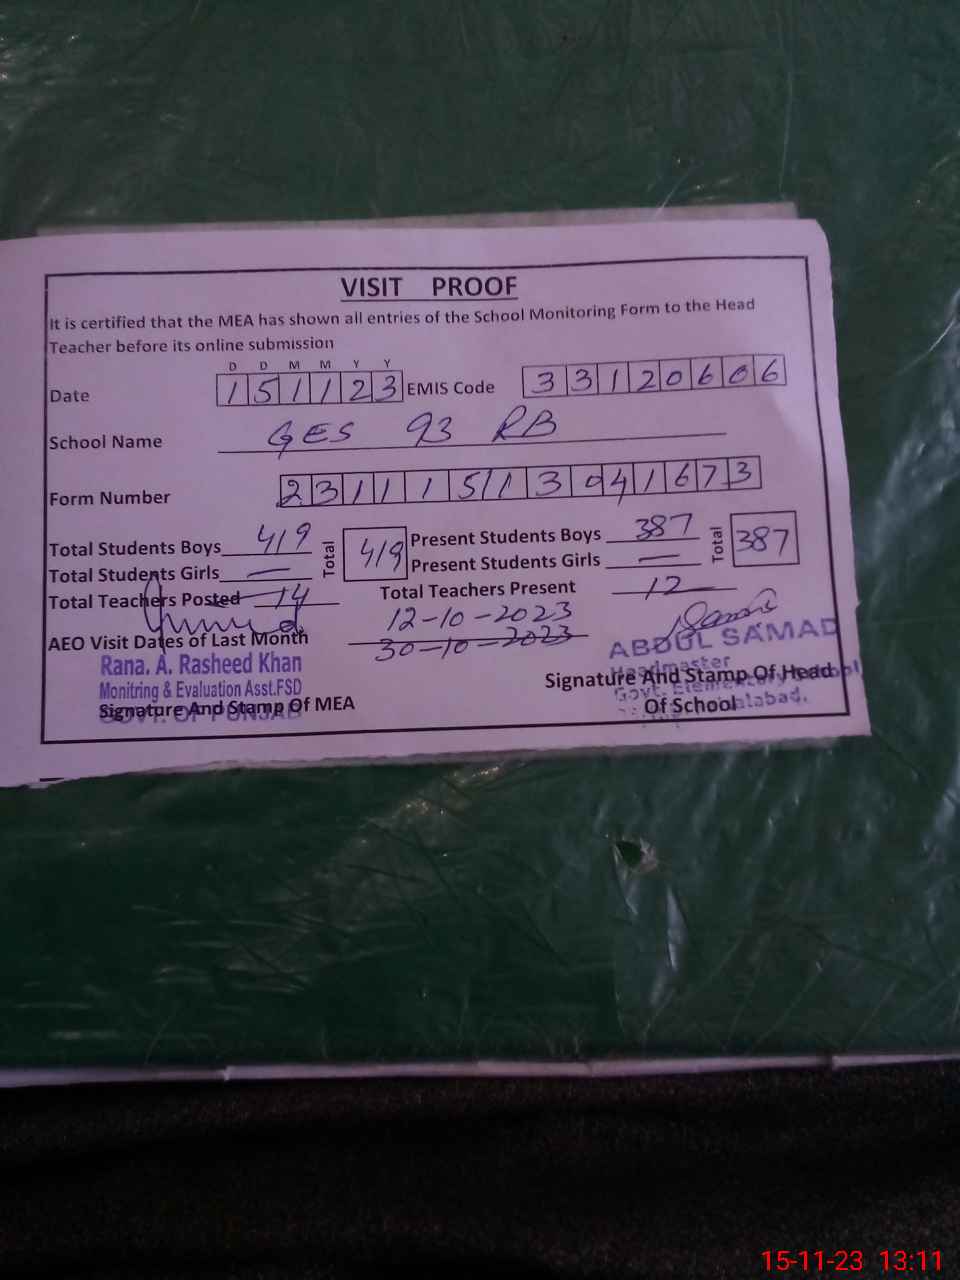 VISIT PROOF
It is certified that the MEA has shown all entries of the School Monitoring Form to the Head
Teacher before its online submission
D D M M Y Y
Date 1 5 1 1 2 3 EMIS Code 3 3 1 2 0 6 0 6
School Name GES 93 RB
Form Number 2 3 1 1 1 5 1 1 3 0 4 1 6 7 3
Total Students Boys 419 Total 419 Present Students Boys 387 Total 387
Total Students Girls — Present Students Girls —
Total Teachers Posted 14 Total Teachers Present 12
AEO Visit Dates of Last Month 12-10-2023
30-10-2023
Rana. A. Rasheed Khan
Monitring & Evaluation Asst.FSD
GOVT. OF PUNJAB
Signature And Stamp Of MEA
ABDUL SAMAD
Headmaster
Govt. Elementary School
Signature And Stamp Of Head
Of School
15-11-23 13:11